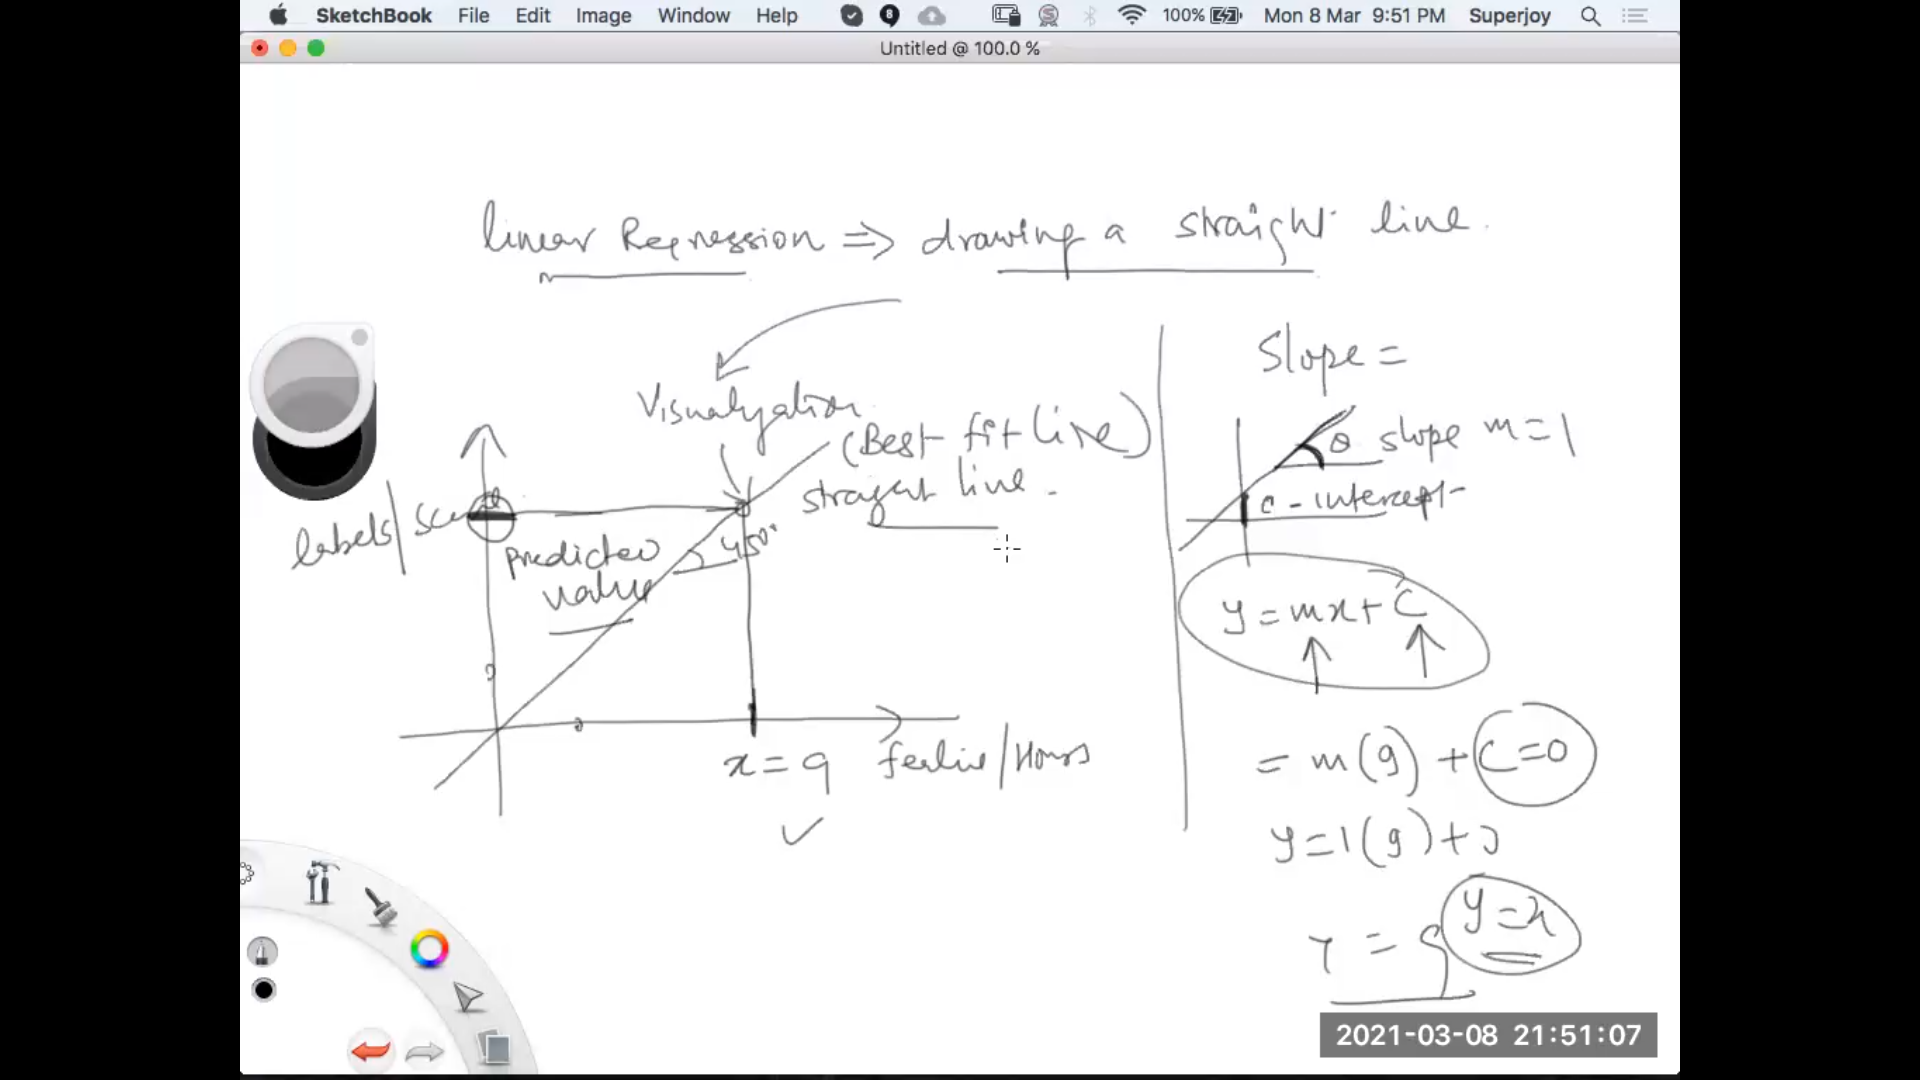 SketchBook File Edit Image Window Help 8 100% Mon 8 Mar 9:51 PM Superjoy
Untitled @ 100.0 %
linear Regression => drawing a straight line.
Visualyation
(Best fit line)
straight line.
labels/
predicted
value
45°
x = 9
/Hours
Slope =
θ slope m = 1
c - intercept
y = mx + c
= m(9) + C=0
y = 1(9) + 0
Y = 9
y = x
2021-03-08 21:51:07